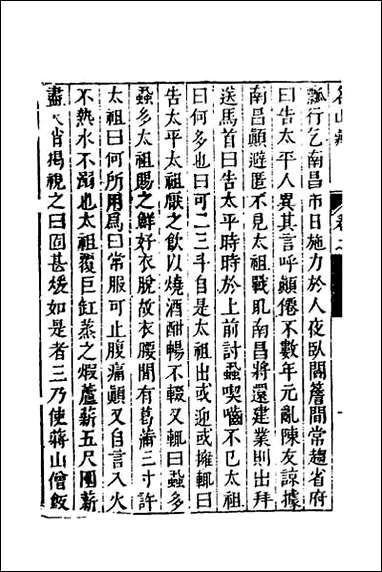 名山藏 卷之
瓢行乞南昌市日施力於人夜臥閣簷間常趨省府
曰告太平人異其言呼顛僊不數年元亂陳友諒據
南昌顛避匿不見太祖南昌將還建業則出拜
送馬首曰告太平時時於上前討蝨喫嚙不已太祖
曰何多也曰可二三斗自是太祖出或迎或擁輒曰
告太平太祖厭之飲以燒酒酣暢不輟又輒曰蝨多
蝨多太祖賜之鮮好衣脫故衣腰閒有菖蒲三寸許
太祖曰何所用爲曰常服可止腹痛顛又自言入火
不熱水不溺也太祖覆巨缸蒸之煆蘆薪五尺圍薪
盡火消揭視之曰固甚煖如是者三乃使蔣山僧飯